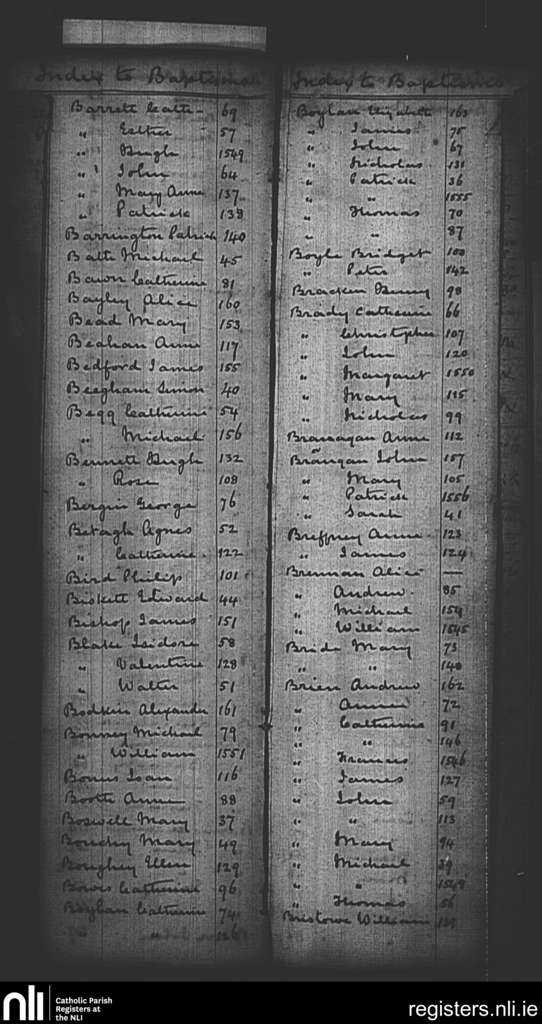 Index to Baptisms
Barrett Cathe 69
" Esther 57
" Hugh 1549
" John 64
" Mary Anne 137
" Patrick 138
Barrington Patrick 140
Batte Michael 45
Bawn Catherine 81
Bayley Alice 160
Bead Mary 153
Beahan Anne 117
Bedford James 155
Beegham Simon 40
Begg Catherine 54
" Michael 156
Bennett Hugh 132
" Rose 108
Bergin George 76
Betagh Agnes 52
" Catherine 122
Bird Philip 101
Biskett Edward 44
Bishop James 151
Blake Isidore 58
" Valentine 128
" Walter 51
Bodkin Alexander 161
Bonney Michael 79
" William 1551
Bonus Joan 116
Booth Anne 88
Boswell Mary 37
Bouchy Mary 49
Boughey Ellen 129
Catherine 96
Boylan Catherine 74
" "
Index to Baptisms
Boylan Elizabeth 163
" James 75
" John 67
" Nicholas 131
" Patrick 36
" " 1555
" Thomas 70
" " 87
Boyle Bridget 100
" Peter 142
Bracken Henry 98
Brady Catherine 66
" Christopher 107
" John 120
" Margaret 1550
" Mary 115
" Nicholas 99
Branagan Anne 112
Brangan John 157
" Mary 105
" Patrick 1556
" Sarah 41
Breffney Anne 123
" James 124
Brennan Alice —
" Andrew 85
" Michael 154
" William 1545
Bride Mary 73
" " 148
Brien Andrew 162
" Anne 72
" Catherine 91
" " 146
" Francis 1546
" James 127
" John 59
" " 113
" Mary 94
" Michael 39
" " 1549
" Thomas 56
Bristowe William
nli
Catholic Parish
Registers at
the NLI
registers.nli.ie